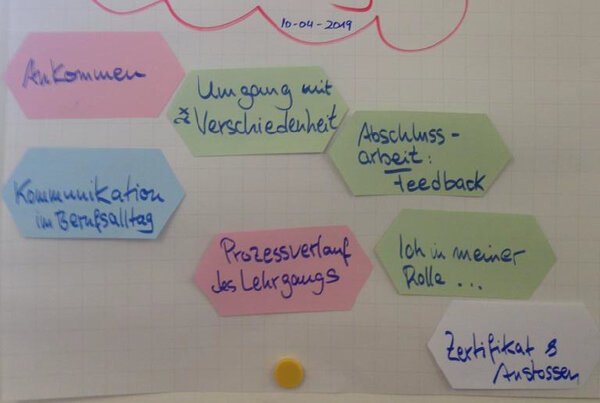 10-04-2019
Ankommen
Umgang mit
Verschiedenheit
Abschluss-
arbeit:
Feedback
Kommunikation
im Berufsalltag
Prozessverlauf
des Lehrgangs
Ich in meiner
Rolle ...
Zertifikat &
Anstossen